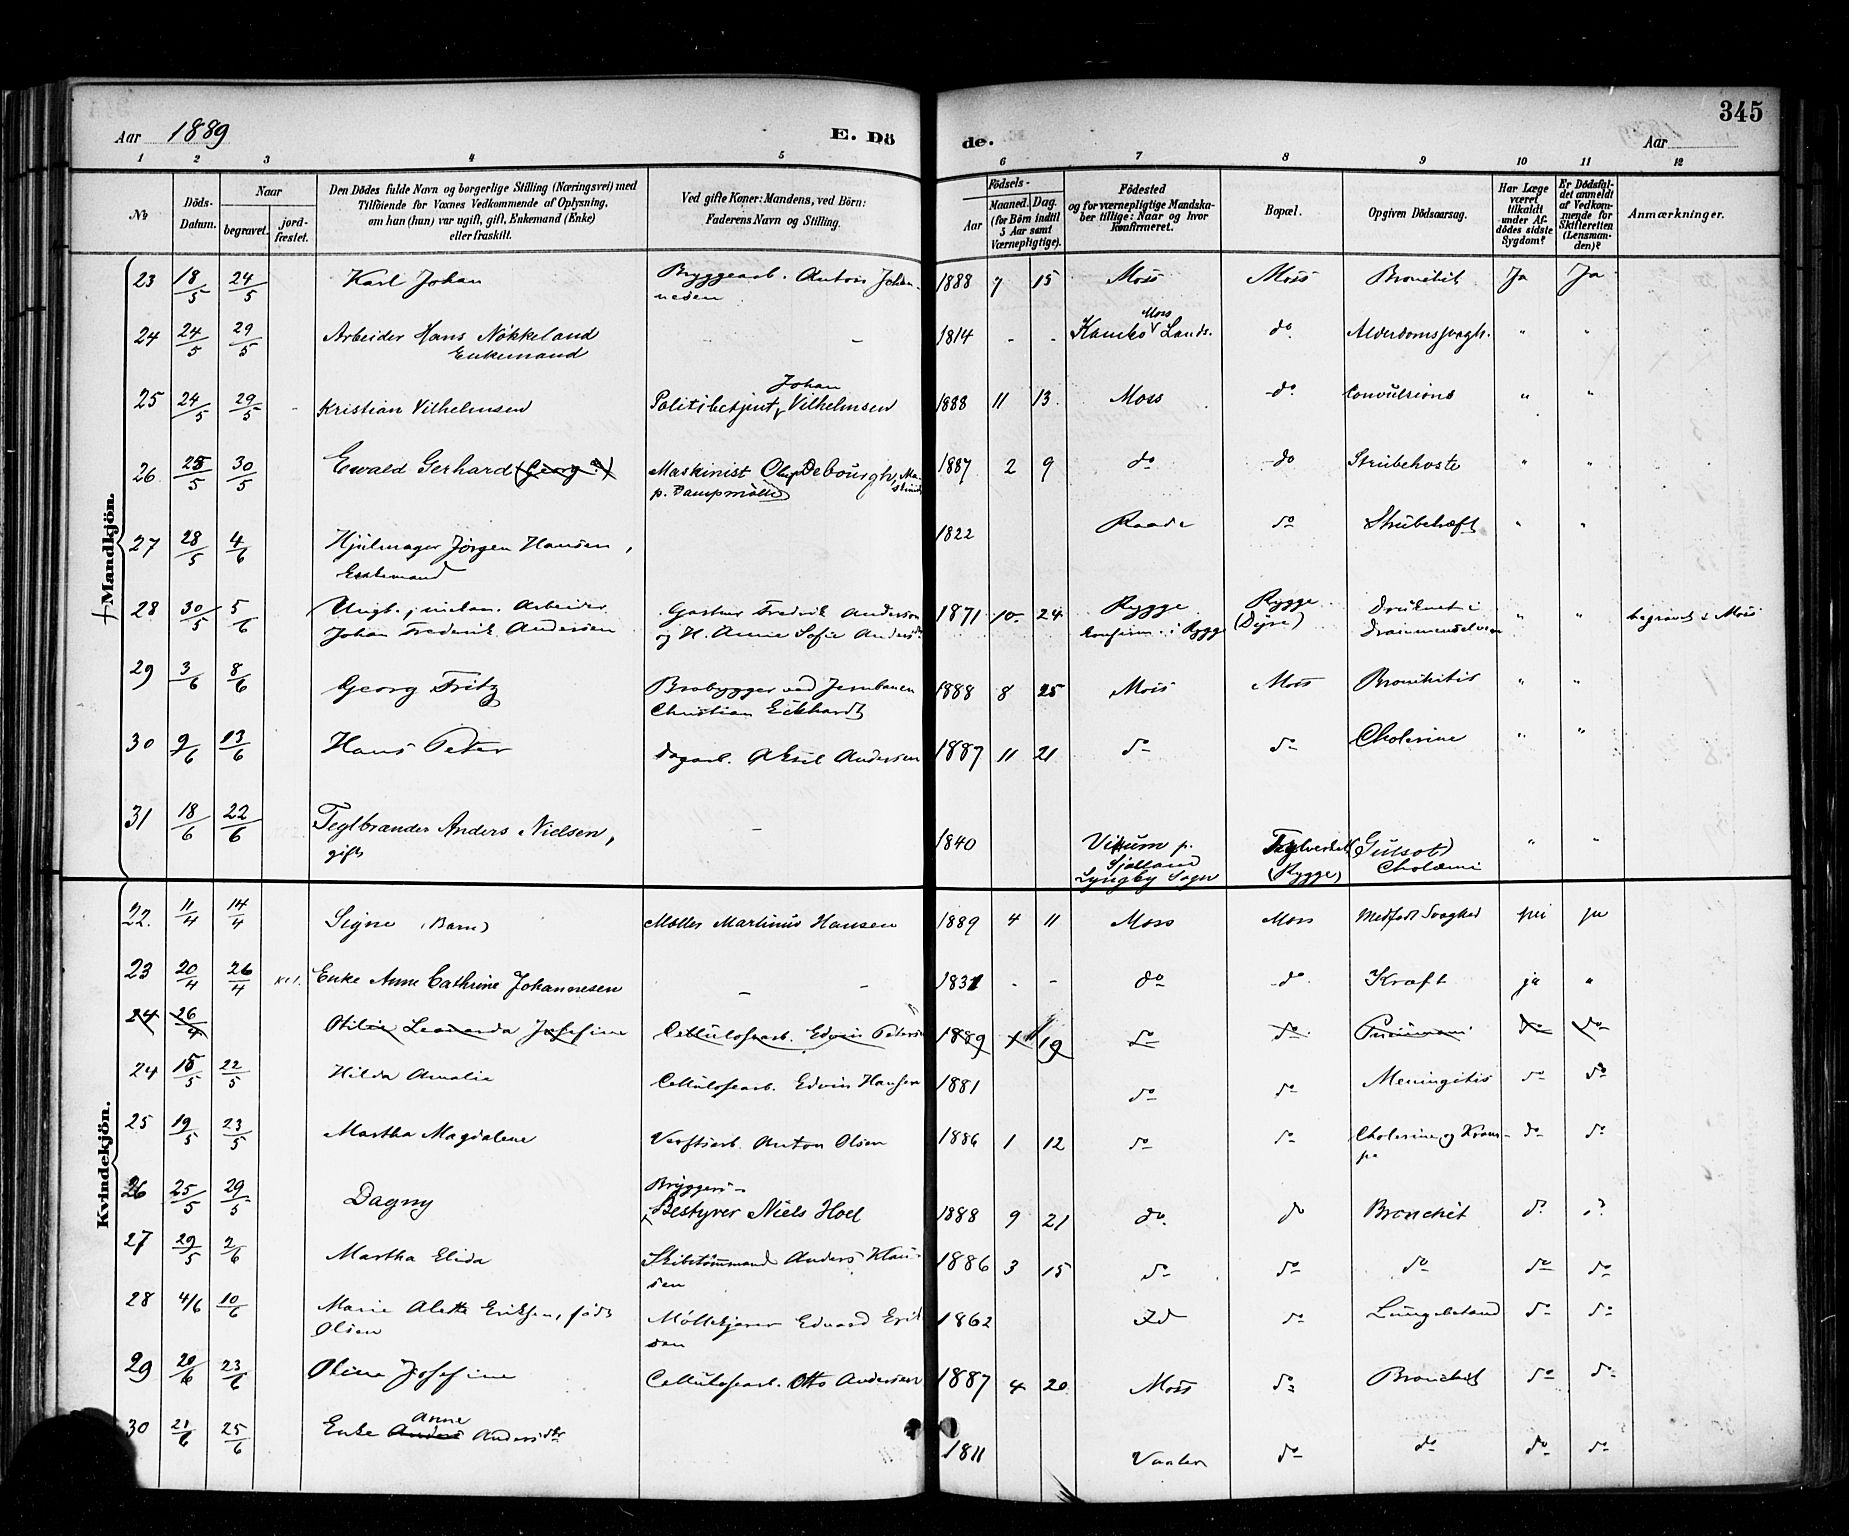 345
Aar 1889 E. Dö de. Aar
1 2 3 4 5 6 7 8 9 10 11 12
№ Döds-Datum. Naar begravet. jord-fæstet. Den Dödes fulde Navn og borgerlige Stilling (Næringsvei) med Tilföiende for Voxnes Vedkommende af Oplysning, om han (hun) var ugift, gift, Enkemand (Enke) eller fraskilt. Ved gifte Koner: Mandens, ved Börn: Faderens Navn og Stilling. Födsels- Aar Maaned. Dag. (for Börn indtil 5 Aar samt Værnepligtige). Födested og for værnepligtige Mandskaber tillige: Naar og hvor konfirmeret. Bopæl. Opgiven Dödsaarsag. Har Læge været tilkaldt under Afdödes sidste Sygdom? Er Dödsfaldet anmeldt af Vedkommende for Skifteretten (Lensmanden)? Anmærkninger.
Mandkjön.
23 18/5 24/5 Karl Johan Bryggearb. Anton Johannesen 1888 7 15 Moss Moss Bronchit Ja Ja
24 24/5 29/5 Arbeider Hans Nökkeland Enkemand - 1814 - - Kambo Moss Lands. do Alderdomssvagh. " "
25 24/5 29/5 - Kristian Vilhelmsen Politibetjent Johan Vilhelmsen 1888 11 13 Moss do Convulsions " "
26 25/5 30/5 Ewald Gerhard (Georg?) Maskinist Olaf Debourgh, p. Dampmölle 1887 2 9 do do Strubehoste " "
27 28/5 4/6 Hjulmager Jörgen Hansen, Enkemand 1822 Raade do Strubekræft " "
28 30/5 5/6 Ungk., Arbeider Johan Frederik Andersen Fredrik Anderson og H. Anne Sofie Andersdtr 1871 10 24 Rygge konfirm. i Rygge Rygge (Dyre) Druknet i Drammenselven " " begravet i Moss
29 3/6 8/6 Georg Fritz Brobygger ved Jernbanen Christian Eckhardt 1888 8 25 Moss Moss Bronchitis " "
30 9/6 13/6 Hans Peter Dagarb. Aksel Andersen 1887 11 21 do do Cholerine " "
31 18/6 22/6 Teglbrænder Anders Nielsen, gift - 1840 Vikum p. Sjælland Lyngby Sogn Teglverket (Rygge) Gulsot Cholæmi " "
Kvindekjön.
22. 11/4 14/4 Signe (Barn) Möller Martinus Hansen 1889 4 11 Moss Moss Medfödt Svaghed nei ja
23 20/4 26/4 Enke Anne Cathrine Johannesen - - 1831 - - do do Kræft ja "
24 26/4 Otilie Leonarda Josefine Cellulosearb. Edvin Petersen 1889 1 19 do do do do
24 15/5 22/5 Hilda Amalie Cellulosearb. Edvin Hansen 1881 do do Meningitis do do
25 19/5 23/5 Martha Magdalene Verftsarb. Anton Olsen 1886 1 12 do do Cholerine og Krampe do do
26 25/5 29/5 Dagny Bryggeri-Bestyrer Niels Hoel 1888 9 21 do. do Bronchit do do
27 29/5 2/6 Martha Elida Skibstömmand Anders Klausen 1886 3 15 do do do do do
28 4/6 10/6 Marie Alette Eriksen, födt Olsen Möllekjörer Edvard Eriksen 1862 Id do Lungebetænd do do
29 20/6 23/6 Oline Josefine Cellulosearb. Otto Andersen 1887 4 20 Moss do Bronchit do do
30 21/6 25/6 Enke Anders Anne Andersdtr 1811 Vaaler do do do do